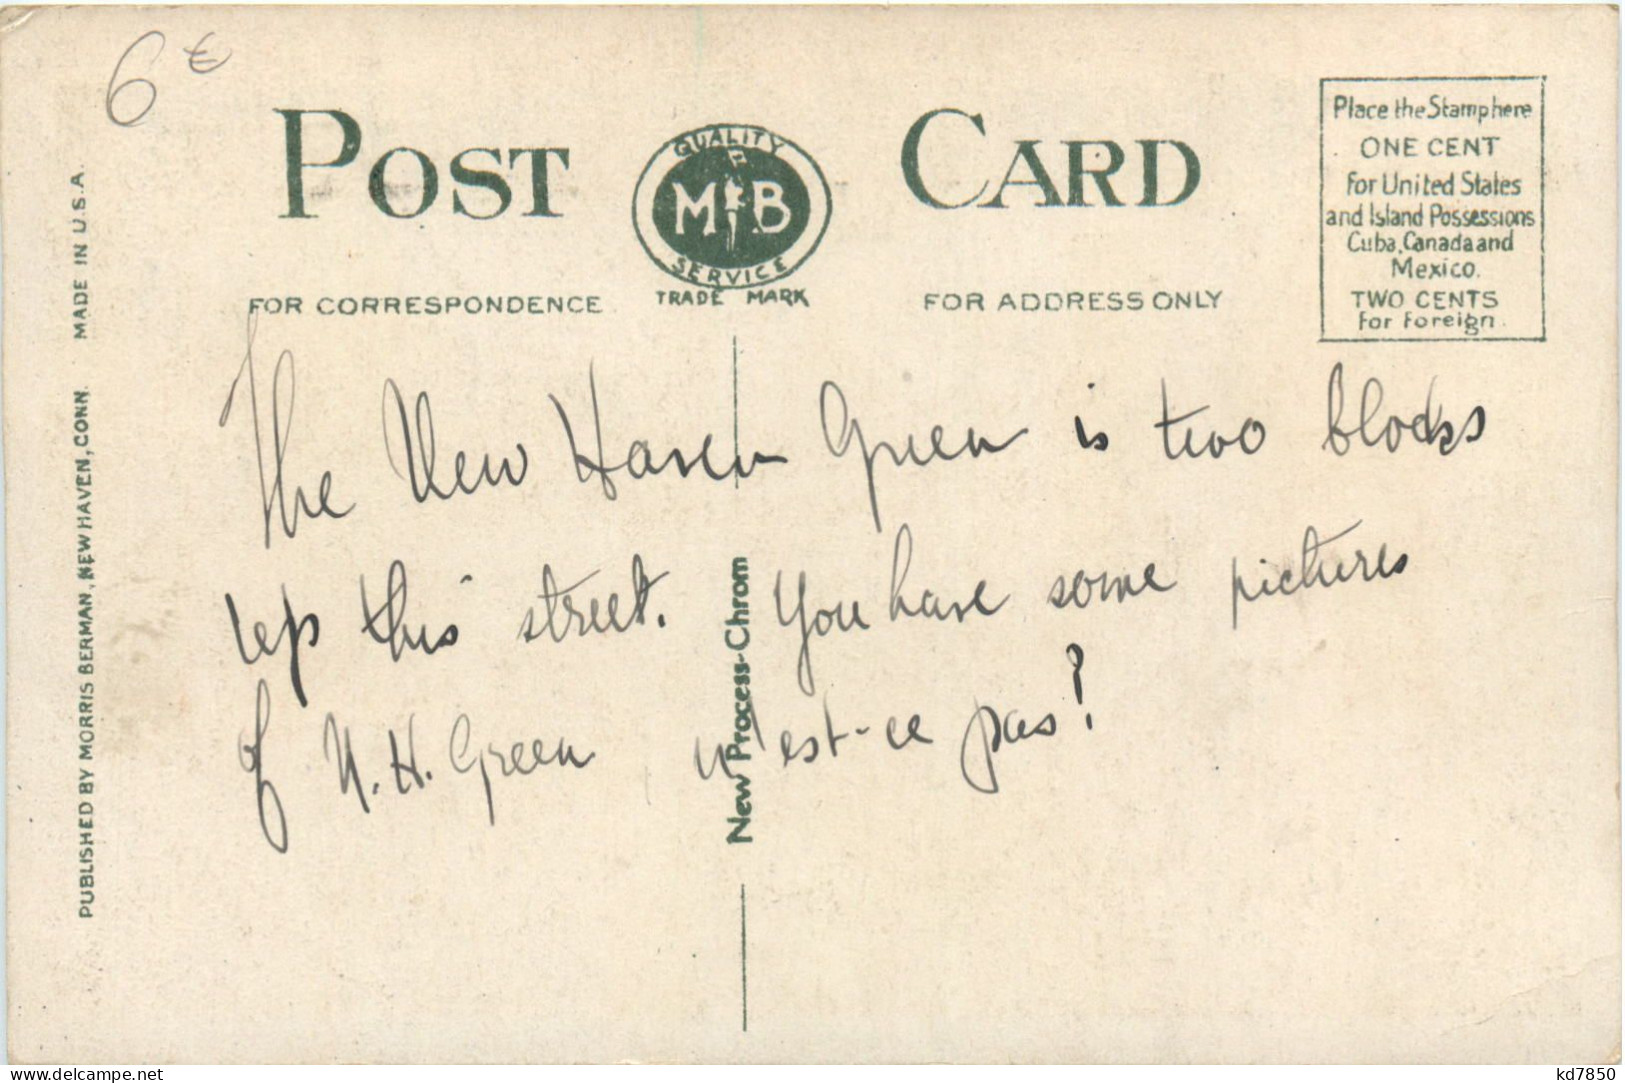 6€
POST CARD
QUALITY
MB
SERVICE
TRADE MARK
FOR CORRESPONDENCE
FOR ADDRESS ONLY
Place the Stamp here
ONE CENT
for United States
and Island Possessions
Cuba, Canada and
Mexico.
TWO CENTS
for Foreign.
PUBLISHED BY MORRIS BERMAN, NEW HAVEN, CONN. MADE IN U.S.A.
New Process-Chrom
The New Haven Green is two blocks
up this street. You have some pictures
of N. H. Green n'est-ce pas?
www.delcampe.net
kd7850